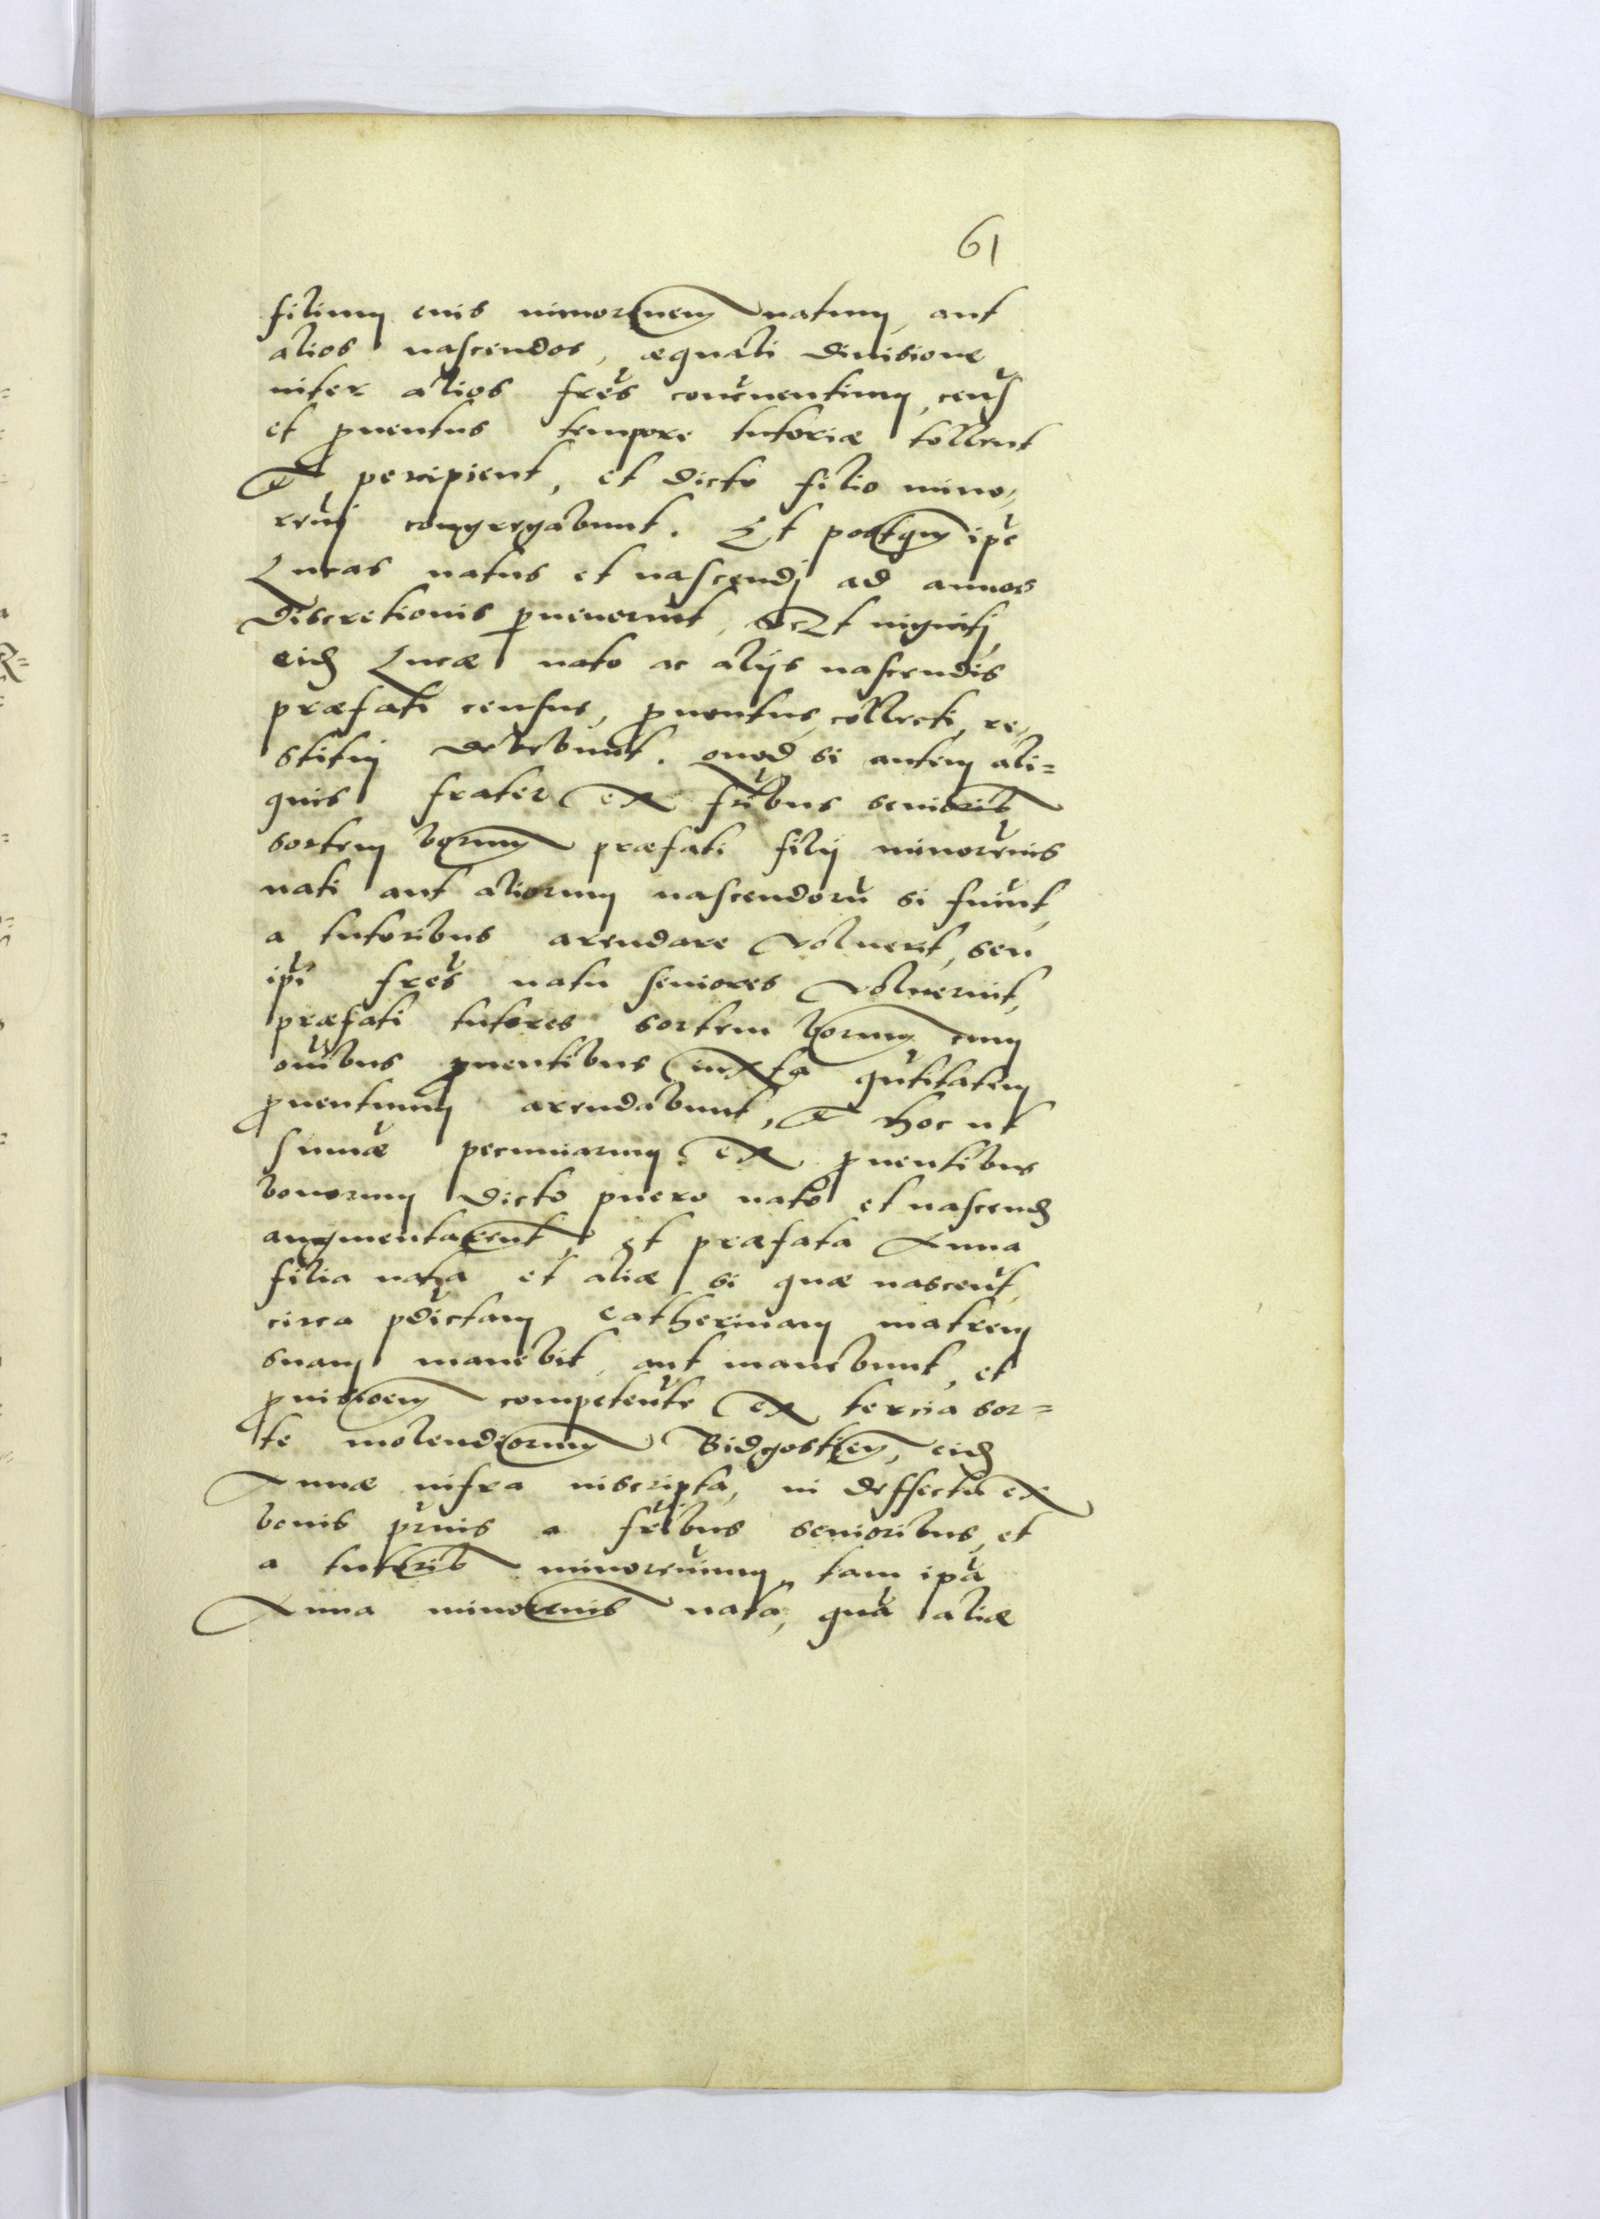 61
filium eius minorenem natum, aut
alios nascendos, æquali divisione
inter alios fres concernentium, cens
et pventus tempore tutoriæ tollent
et percipient, et dicto filio mino,
renj congregabunt. Et postqm ipe
Lucas natus et nascendj ad annos
discretionis pvenerint,
eid Lucæ nato ac alijs nascendis
præfati census, pventus, collecti, re,
stituj debebunt. quod si autem ali=
quis frater ex fribus seniorib
sortem borum præfati filij minorenis
nati aut aliorum nascendoru si fuint,
a tutoribus arendare voluerit, seu
ipi fres natu seniores voluerint,
præfati tutores sortem borum cum
oibus pventibus iuxta qutitatem
pventuum arendabunt, et hoc ut
sumæ pecuniarum ex pventibus
bonorum dicto puero nato et nascend
augmentarent, et præfata Anna
filia nata et aliæ si quæ nascent,
circa pdictam Catherinam matrem
suam manebit, aut manebunt, et
pvisioem competente ex tercia sor=
te molendiorum Bidgostien, eid
Annæ infra inscripta, in deffectu ex
bonis prnis a fribus senioribus, et
a tutorib minorenium, tam ipa
Anna minorenis nata, qua aliæ